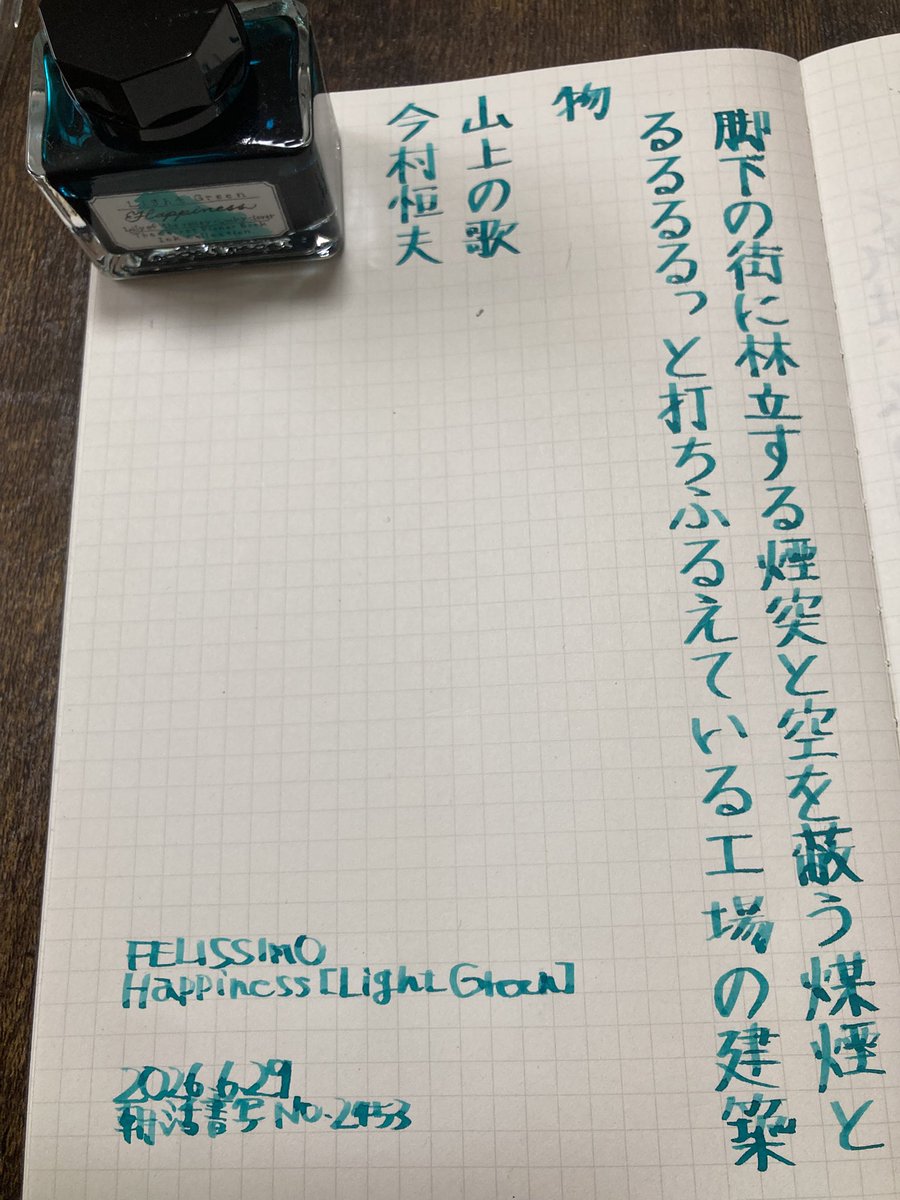 脚下の街に林立する煙突と空を蔽う煤煙と
るるるるっと打ちふるえている工場の建築
物
山上の歌
今村恒夫
FELISSIMO
Happiness [Light Green]
2026.6.29
朝活書写 No.2453
Light Green
Happiness